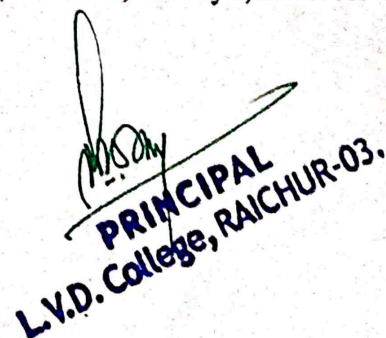 PRINCIPAL
L.V.D. College, RAICHUR-03.